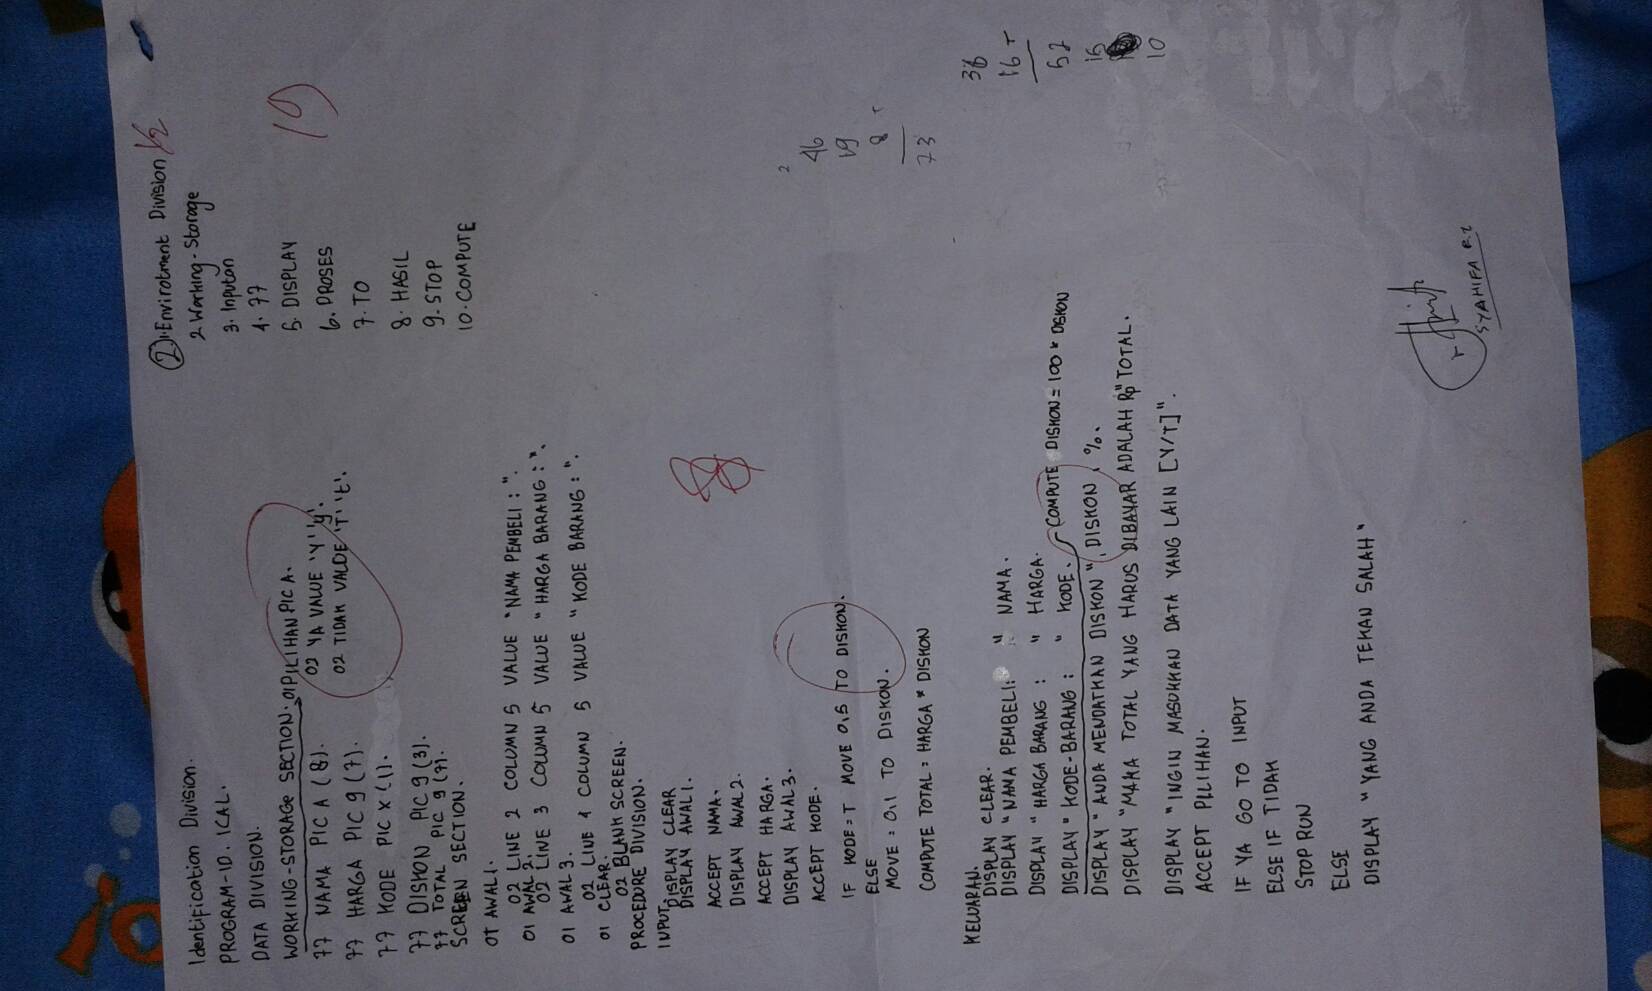 Identification Division.
PROGRAM-ID. ICAL.
DATA DIVISION.
WORKING-STORAGE SECTION. 01 PILIHAN PIC A.
02 YA VALUE 'Y' 'y'.
02 TIDAK VALUE 'T' 't'.
77 NAMA PIC A (8).
77 HARGA PIC 9 (7).
77 KODE PIC X (1).
77 DISKON PIC 9 (3).
77 TOTAL PIC 9 (7).
SCREEN SECTION.
01 AWAL 1.
02 LINE 2 COLUMN 5 VALUE "NAMA PEMBELI : ".
01 AWAL 2.
02 LINE 3 COLUMN 5 VALUE "HARGA BARANG : ".
01 AWAL 3.
02 LINE 4 COLUMN 5 VALUE "KODE BARANG : ".
01 CLEAR.
02 BLANK SCREEN.
PROCEDURE DIVISION.
INPUT.
DISPLAY CLEAR
DISPLAY AWAL 1.
ACCEPT NAMA.
DISPLAY AWAL 2.
ACCEPT HARGA.
DISPLAY AWAL 3.
ACCEPT KODE.
IF KODE = T MOVE 0,5 TO DISKON.
ELSE
MOVE = 0,1 TO DISKON.
COMPUTE TOTAL = HARGA * DISKON
KELUARAN.
DISPLAY CLEAR.
DISPLAY "NAMA PEMBELI : " NAMA.
DISPLAY "HARGA BARANG : " HARGA.
DISPLAY "KODE-BARANG : " KODE. COMPUTE DISKON = 100 * DISKON
DISPLAY "ANDA MENDATKAN DISKON ", DISKON , %.
DISPLAY "MAKA TOTAL YANG HARUS DIBAYAR ADALAH Rp" TOTAL.
DISPLAY "INGIN MASUKKAN DATA YANG LAIN [Y/T]".
ACCEPT PILIHAN.
IF YA GO TO INPUT
ELSE IF TIDAK
STOP RUN
ELSE
DISPLAY "YANG ANDA TEKAN SALAH"
2 1. Envirotment Division 1/2
2. Working-Storage
3. Inputan
4. 77
5. DISPLAY
6. PROSES
7. TO
8. HASIL
9. STOP
10. COMPUTE
19
2
46
19
8 +
73
36
16 +
52
15
10
SYAHIFA RZ